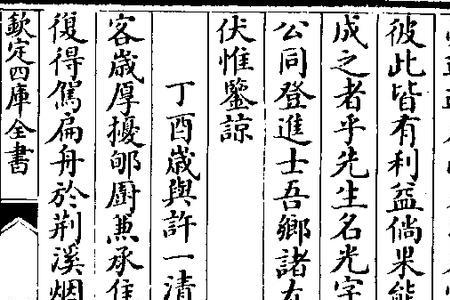 彼此皆有利益倘果能
成之者乎先生名光字
公同登進士吾鄉諸
伏惟鑒諒
丁酉歲與許一清
客歲厚擾郇厨兼承
復得駕扁舟於荆溪烟
欽定四庫全書